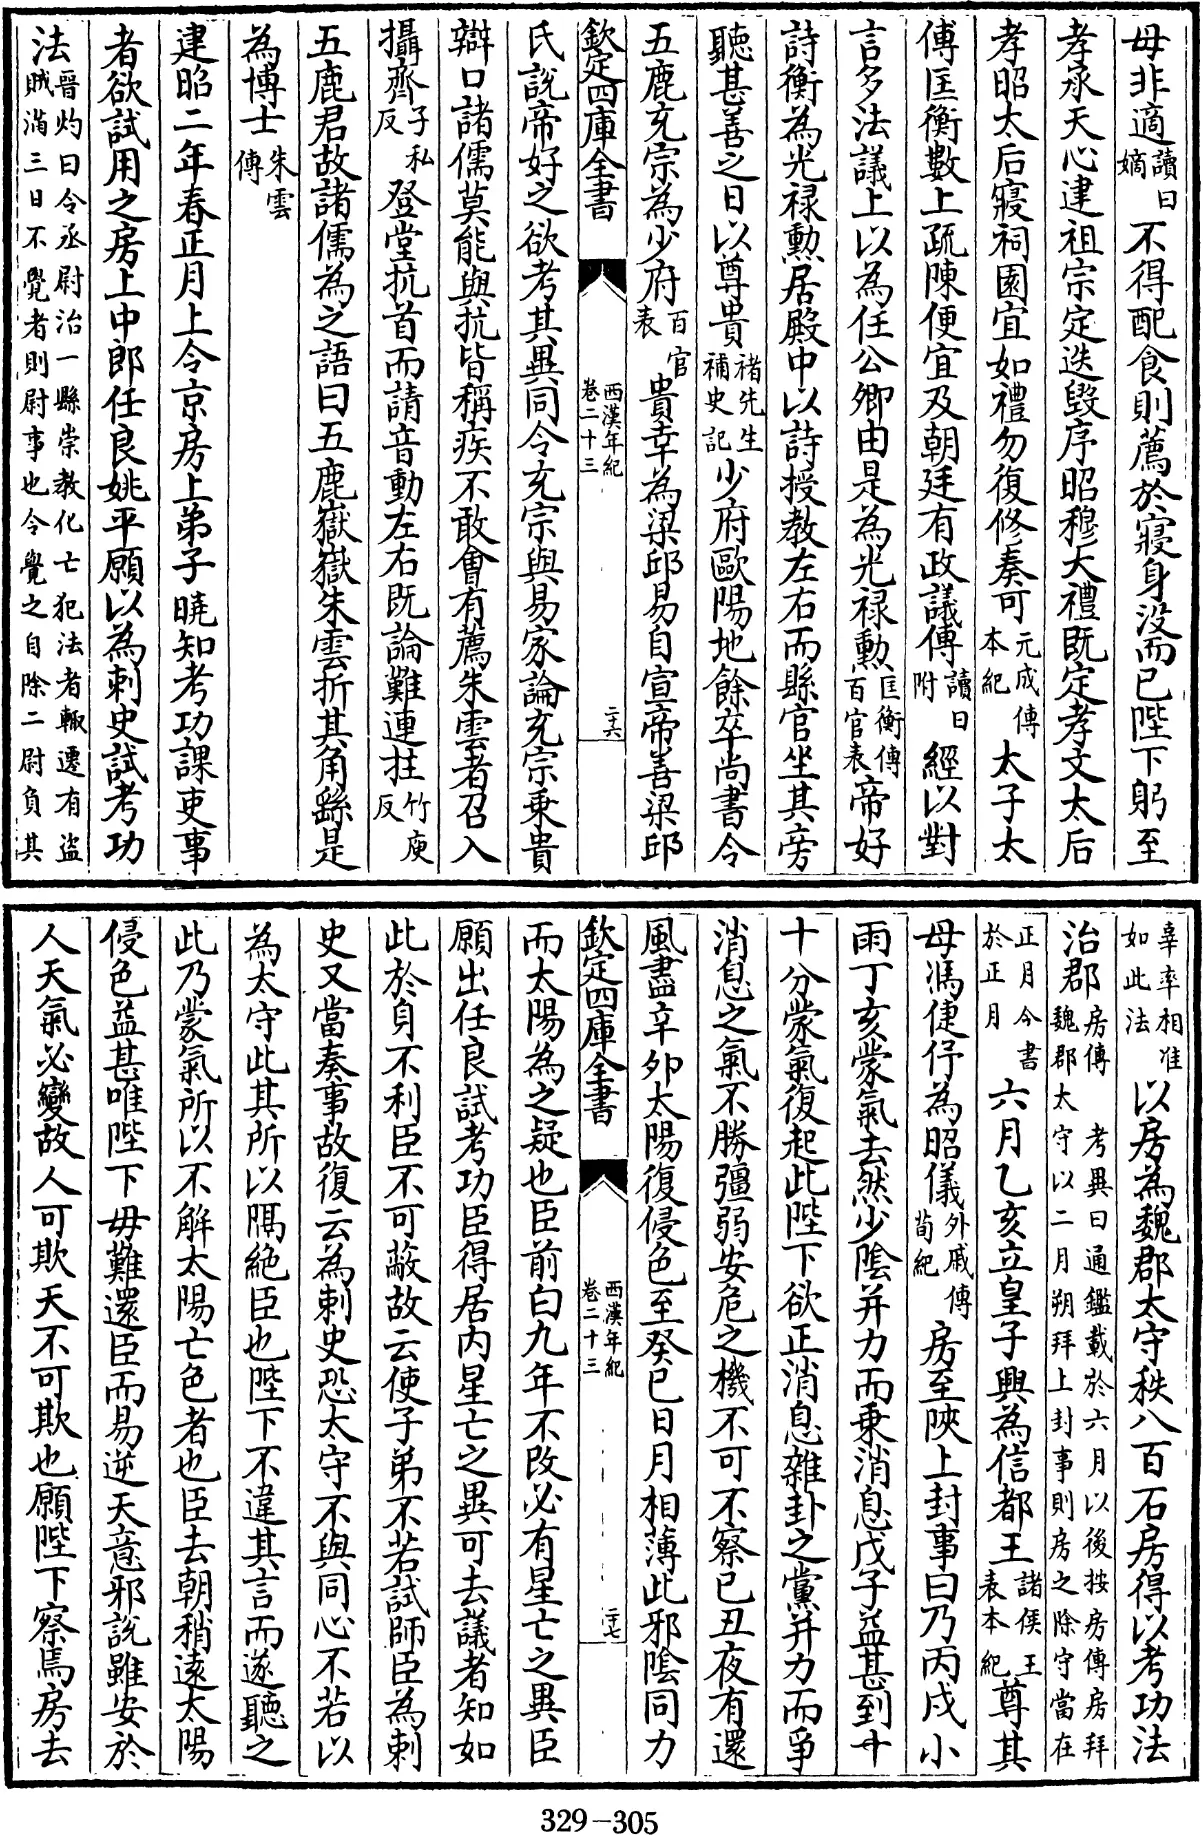 毋非適讀曰嫡不得配食則薦於寢身没而已陛下躬至
孝承天心建祖宗定迭毀序昭穆大禮既定孝文太后
孝昭太后寢祠園宜如禮勿復修奏可元成傳本紀太子太
傅匡衡數上疏陳便宜及朝廷有政議傅讀曰附經以對
言多法議上以為任公卿由是為光禄勲匡衡傳百官表帝好
詩衡為光禄勲居殿中以詩授教左右而縣官坐其旁
聽甚善之日以尊貴褚先生補史記少府歐陽地餘卒尚書令
五鹿充宗為少府百官表貴幸為梁邱易自宣帝善梁邱
欽定四庫全書 西漢年紀卷二十三 二十六
氏說帝好之欲考其異同令充宗與易家論充宗乗貴
辯口諸儒莫能與抗皆稱疾不敢㑹有薦朱雲者召入
攝齊子私反登堂抗首而請音動左右既論難連拄竹庾反
五鹿君故諸儒為之語曰五鹿嶽嶽朱雲折其角繇是
為博士朱雲傳
建昭二年春正月上令京房上弟子曉知考功課吏事
者欲試用之房上中郎任良姚平願以為刺史試考功
法晉灼曰令丞尉治一縣崇教化亡犯法者輙遷有盗賊滿三日不覺者則尉事也令覺之自除二尉負其
辠率相准如此法以房為魏郡太守秩八百石房得以考功法
治郡房傳 考異曰通鑑載於六月以後按房傳房拜魏郡太守以二月朔拜上封事則房之除守當在
正月今書於正月六月乙亥立皇子興為信都王諸侯王表本紀尊其
母馮倢伃為昭儀外戚傳荀紀房至陜上封事曰乃丙戌小
雨丁亥蒙氣去然少隂并力而乗消息戊子益甚到五
十分蒙氣復起此陛下欲正消息雜卦之黨并力而爭
消息之氣不勝彊弱安危之機不可不察已丑夜有還
風盡辛卯太陽復侵色至癸已日月相薄此邪隂同力
欽定四庫全書 西漢年紀卷二十三 二十七
而太陽為之疑也臣前白九年不改必有星亡之異臣
願出任良試考功臣得居内星亡之異可去議者知如
此於身不利臣不可蔽故云使子弟不若試師臣為刺
史又當奏事故復云為刺史恐太守不與同心不若以
為太守此其所以隔絶臣也陛下不違其言而遂聽之
此乃蒙氣所以不解太陽亡色者也臣去朝稍遠太陽
侵色益甚唯陛下毋難還臣而易逆天意邪說雖安於
人天氣必變故人可欺天不可欺也願陛下察焉房去
329-305